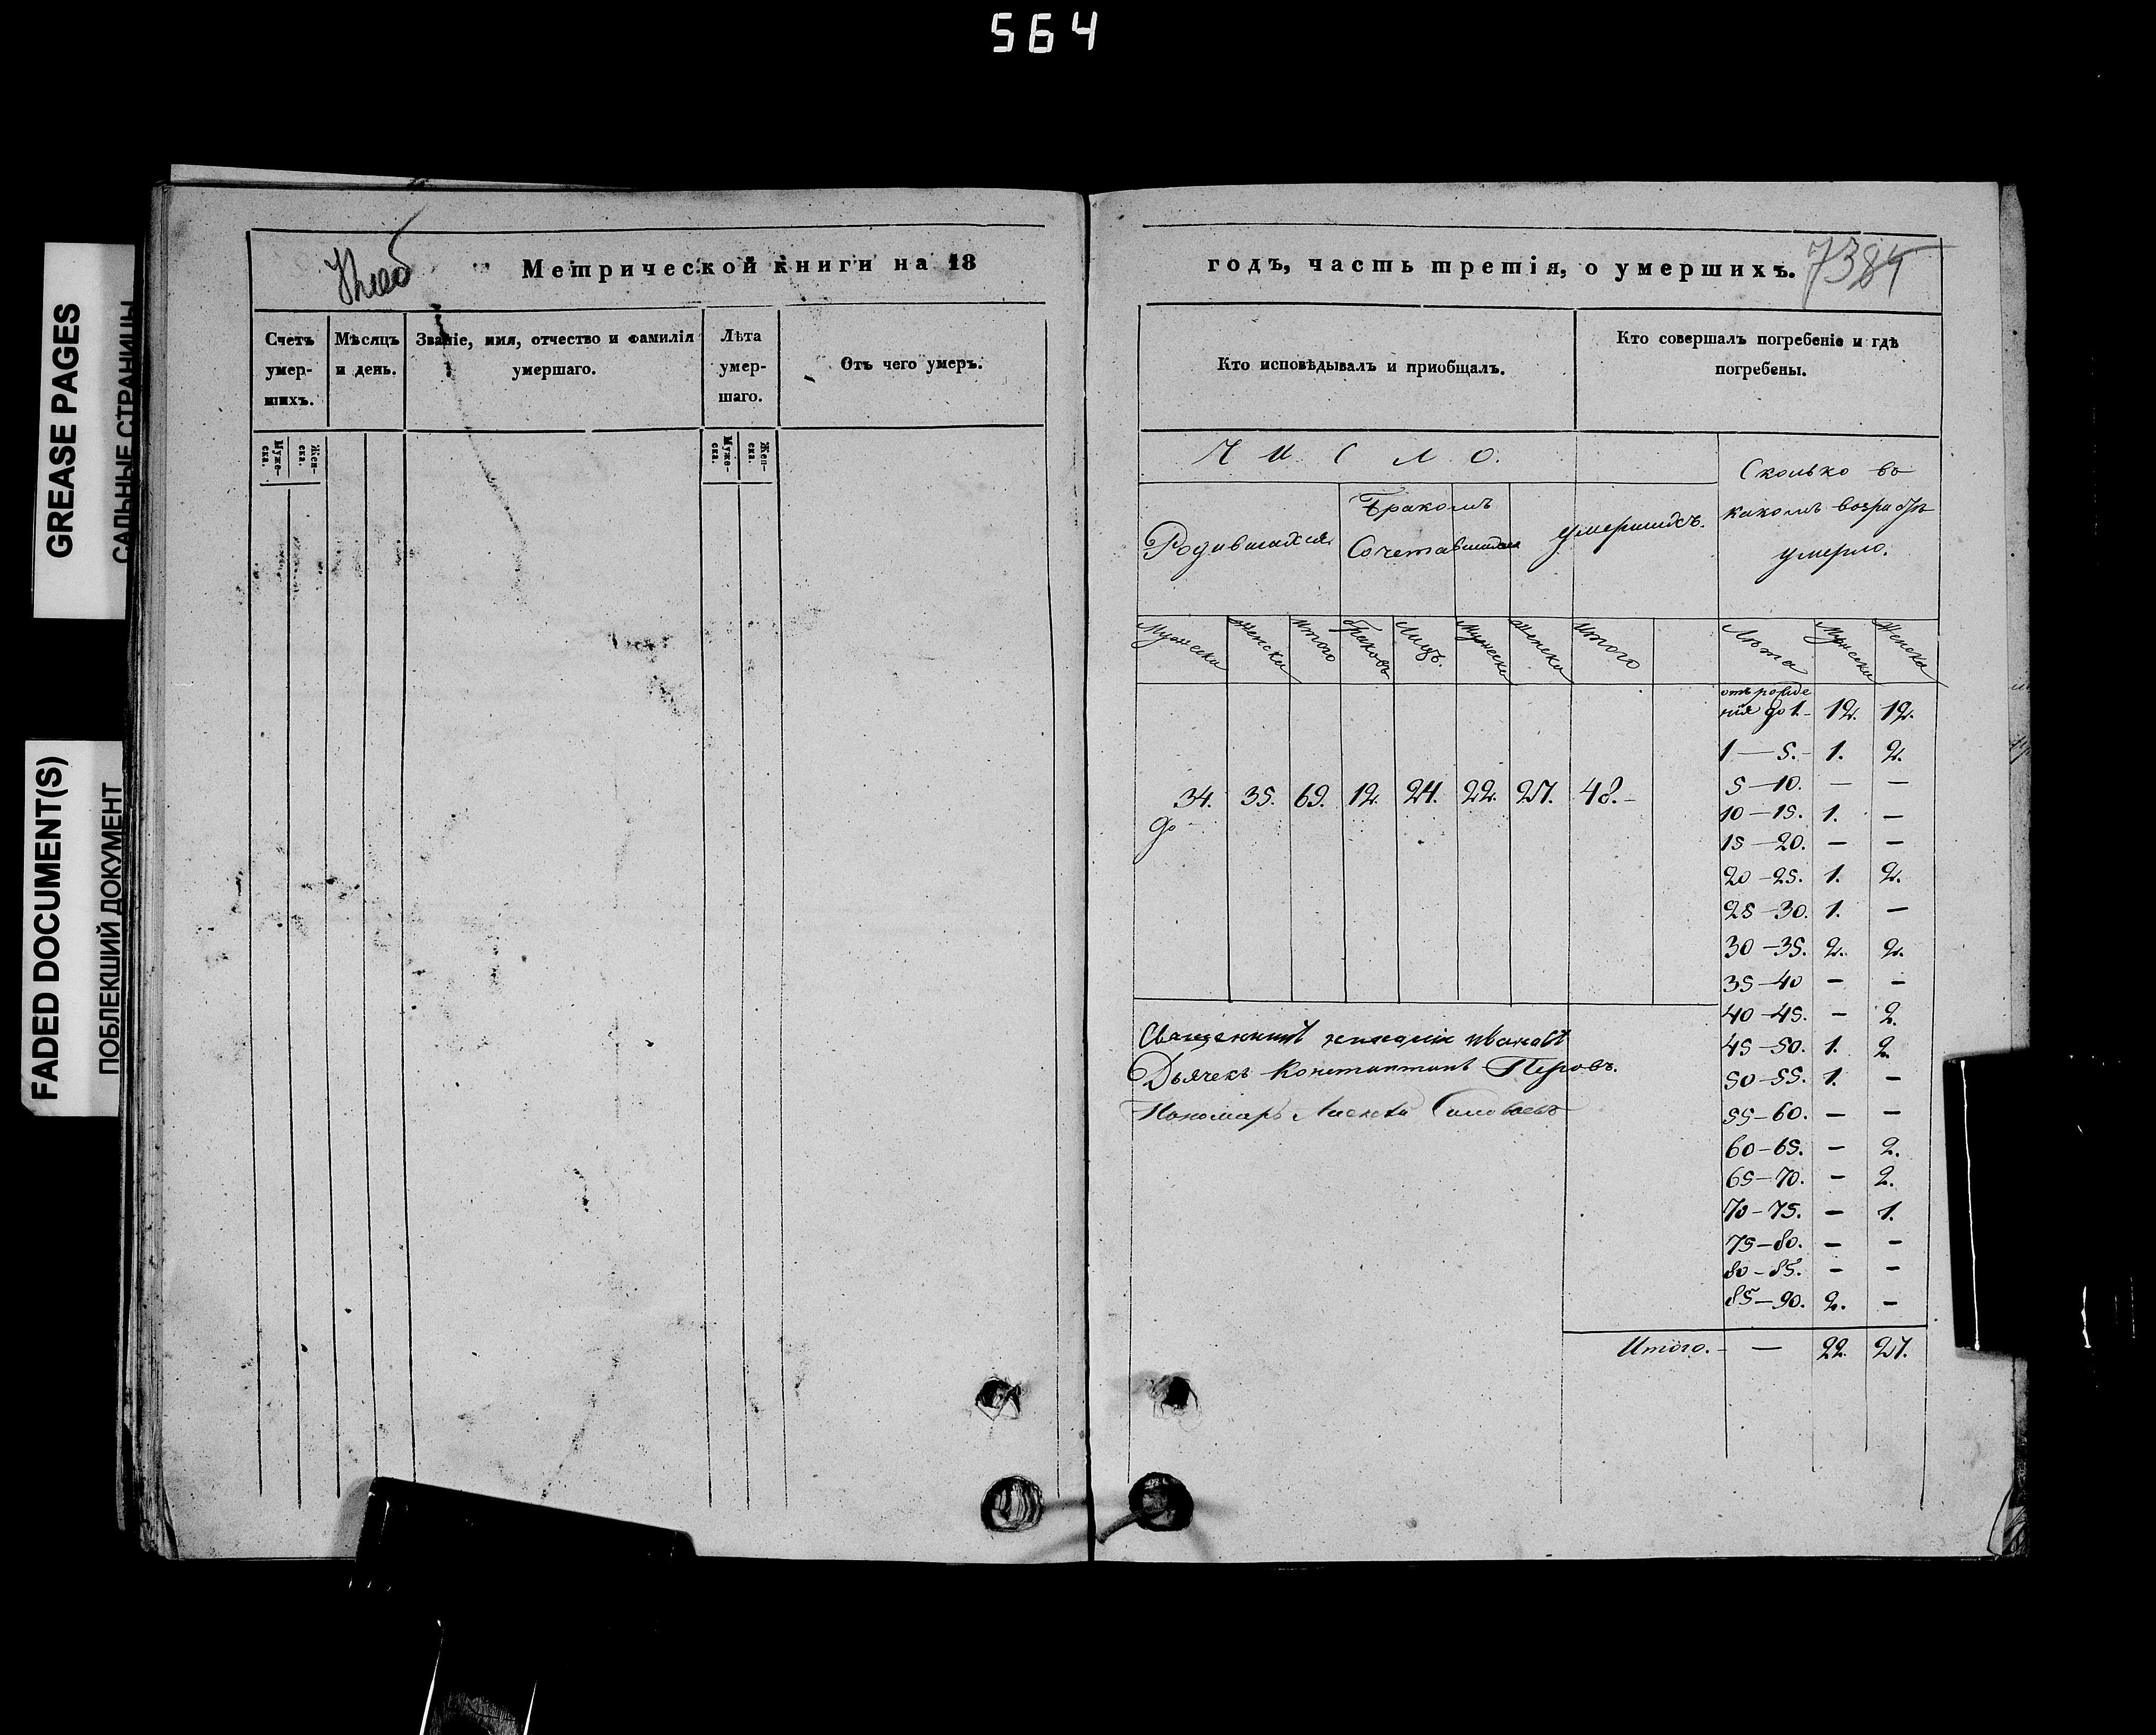 564
GREASE PAGES
САЛЬНЫЕ СТРАНИЦЫ
FADED DOCUMENT(S)
ПОБЛЕКШИЙ ДОКУМЕНТ
Метрической книги на 18
Счетъ умер- шихъ.
Мѣсяцъ и день.
Званіе, имя, отчество и фамилія умершаго.
Лѣта умер- шаго.
Отъ чего умеръ.
Муже- ска.
Жен- ска.
Муже- ска.
Жен- ска.
годъ, часть третія, о умершихъ.
Кто исповѣдывалъ и пріобщалъ.
Кто совершалъ погребеніе и гдѣ погребены.
ЧИСЛО.
Родившихся
Бракомъ
Сочетавшихся
умершихъ.
Сколько въ
какомъ возрастѣ
умерло.
Мужеска Женска Итого Браковъ Лицъ. Мужеска Женска Итого
Лѣта Мужеска Женска
34. 35. 69. 12. 24. 22. 27. 48.-
отъ рожде
нія до 1.- 12. 12.
1—5.- 1. 2.
5—10. — —
10—15. 1. —
15—20. — —
20—25. 1. 2.
25—30. 1. —
30—35. 2. 2.
35—40 — —
40—45. — 2.
45—50. 1. 2.
50—55. 1. —
55—60. — —
60—65. — 2.
65—70. — 2.
70—75. — 1.
75—80. — —
80—85. — —
85—90. 2. —
Итого.- — 22. 27.
Священникъ Ивановъ
Дьячекъ Константинъ Перовъ.
Пономарь